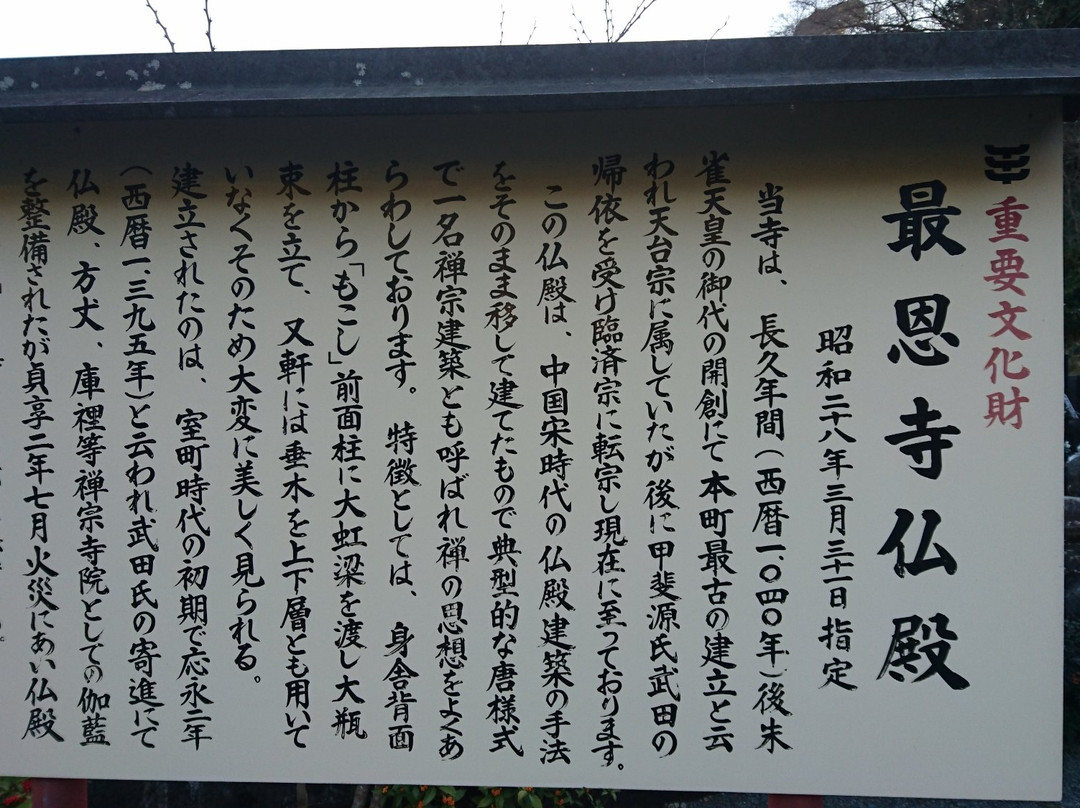 重要文化財
最恩寺仏殿
昭和二十八年三月三十一日指定
当寺は、長久年間(西暦一、〇四〇年)後朱
雀天皇の御代の開創にて本町最古の建立と云
われ天台宗に属していたが後に甲斐源氏武田の
帰依を受け臨済宗に転宗し現在に至っております。
この仏殿は、中国宋時代の仏殿建築の手法
をそのまま移して建てたもので典型的な唐様式
で一名禅宗建築とも呼ばれ禅の思想をよくあ
らわしております。特徴としては、身舎背面
柱から「もこし」前面柱に大虹梁を渡し大瓶
束を立て、又軒には垂木を上下層とも用いて
いなくそのため大変に美しく見られる。
建立されたのは、室町時代の初期で応永二年
(西暦一、三九五年)と云われ武田氏の寄進にて
仏殿、方丈、庫裡等禅宗寺院としての伽藍
を整備されたが貞享二年七月火災にあい仏殿